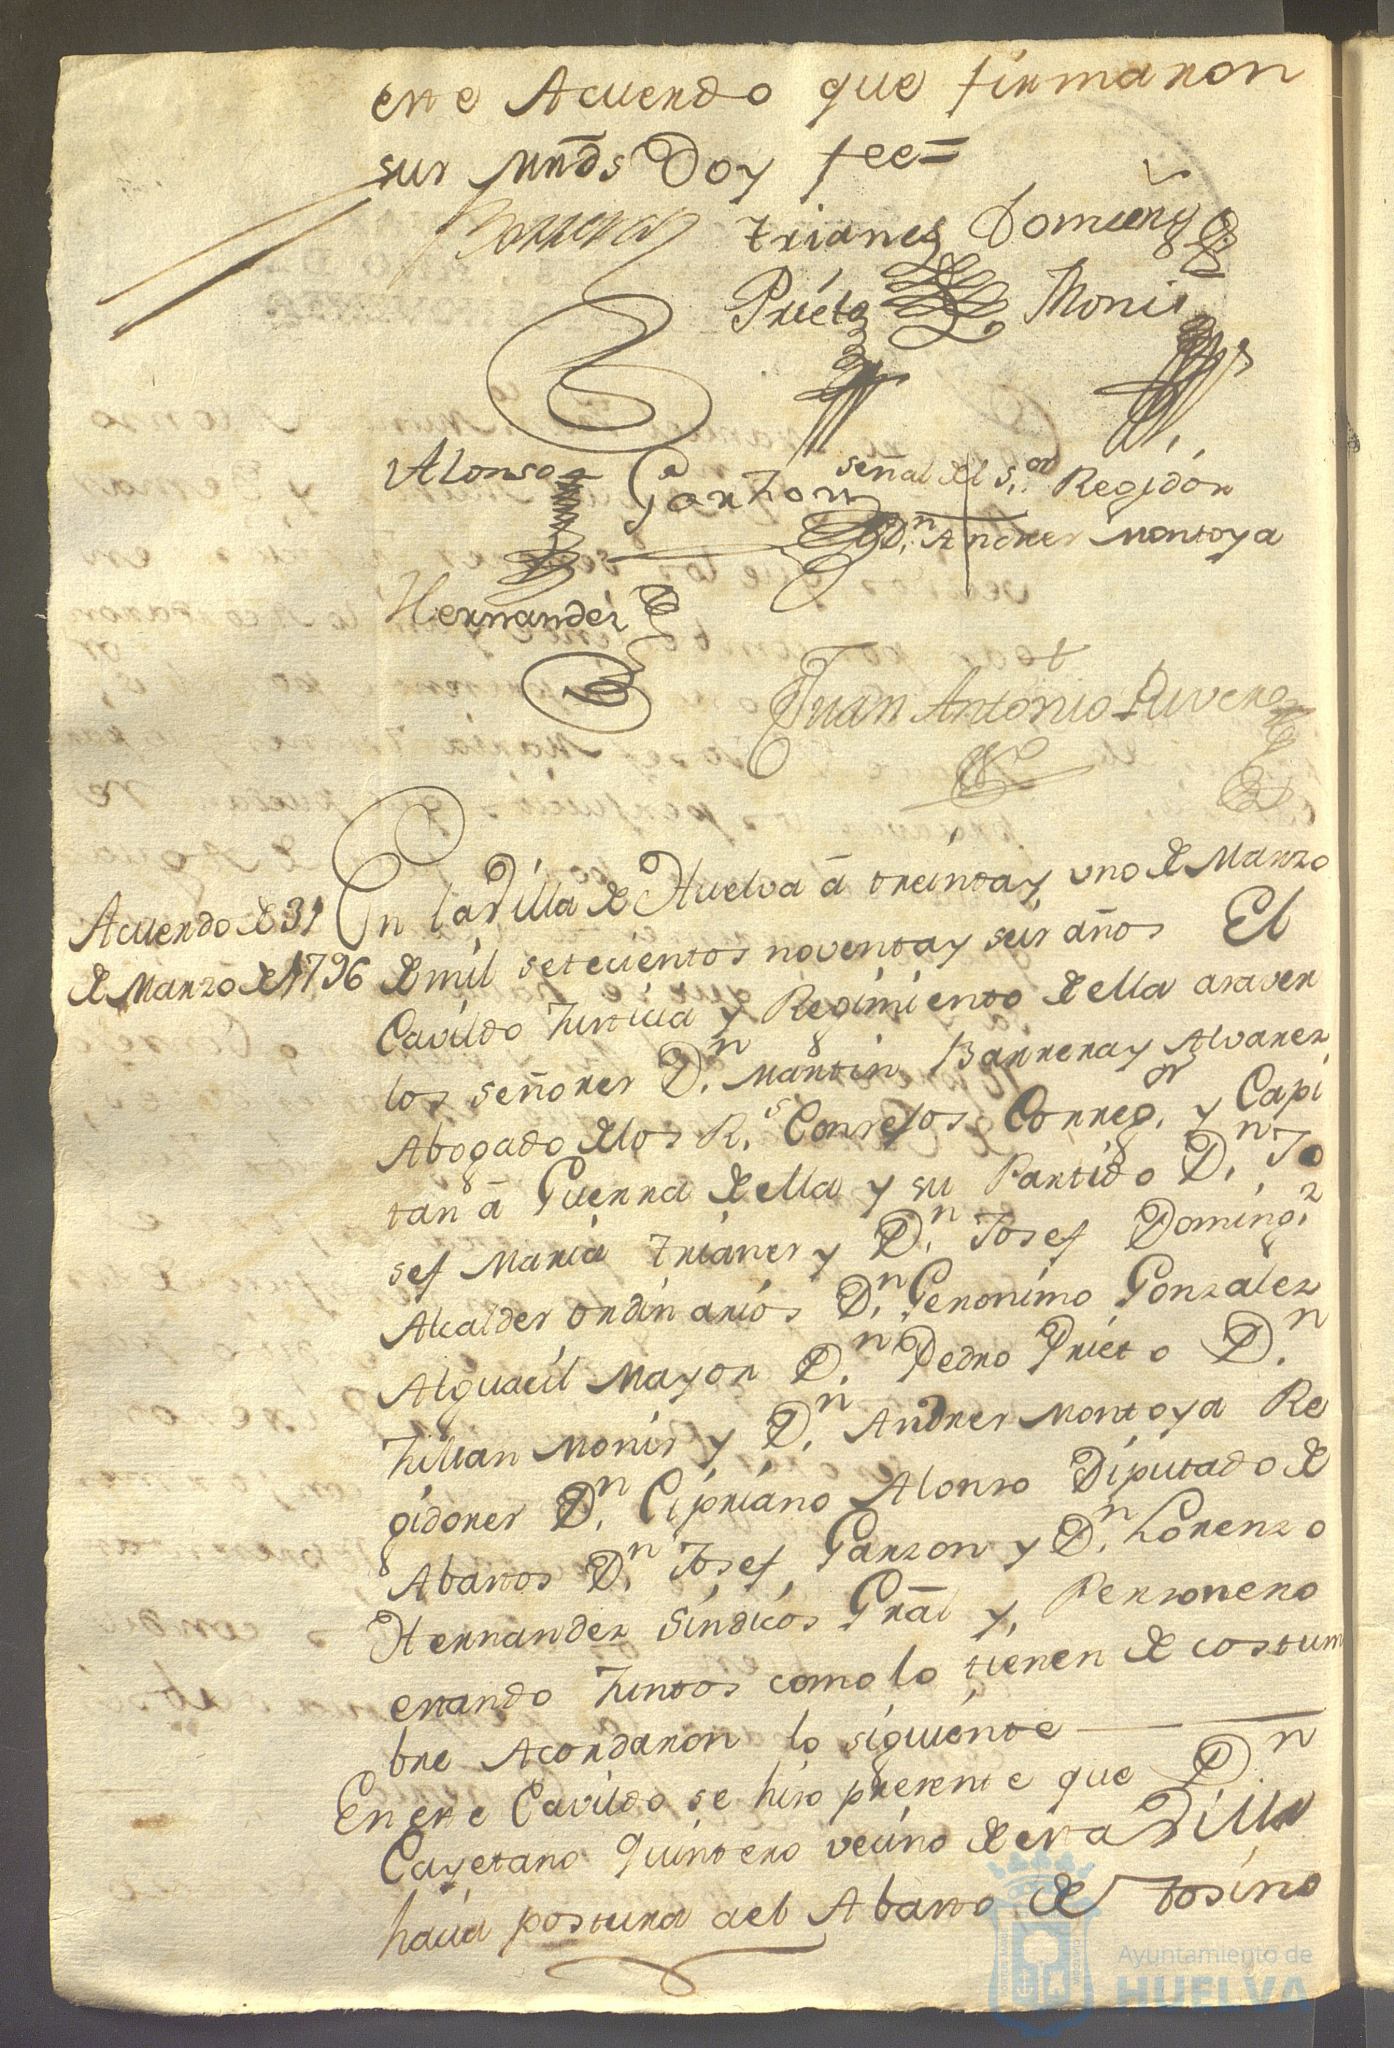 este Acuerdo que firmaron
sus mrds Doy fee=
Barrera Trianes Domingz
Prieto Monis
Alonso Garzon señal del S.or Regidor
D.n Andres Montoya
Hernandez
Juan Antonio Rivera
Acuerdo de 31
de Marzo de 1796
En la Villa de Huelva â treinta y uno de Marzo
de mil setecientos noventa y seis años El
Cavildo Justicia y Regimiento de ella asaver
los señores D.n Martin Barrera y Alvarez
Abogado delos R.s Consejos Correg.or y Capi
tan â Guerra de ella y su Partido D.n Jo
sef Maria Trianes y D.n Josef Doming.z
Alcaldes ordinarios D.n Geronimo Gonzalez
Alguacil Mayor D.n Pedro Prieto D.n
Julian Monis y D.n Andres Montoya Re
gidores D.n Cipriano Alonso Diputado de
Abastos D.n Josef Garzon y D.n Lorenzo
Hernandez Sindicos Grãl y Personero
estando Juntos como lo tienen de costum
bre Acordaron lo siguiente
En este Cavildo se hiso presente que D.n
Cayetano Quintero vecino de esta Villa
hacia postura ael Abasto de tosino
Ayuntamiento de
HUELVA